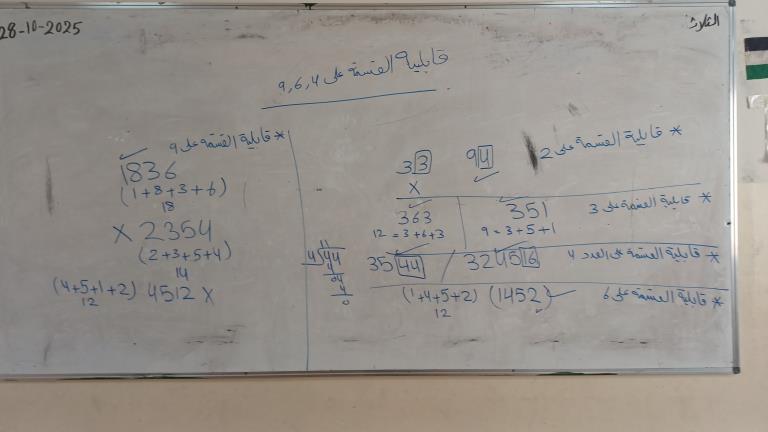 الثلاثاء
28-10-2025
قابلية القسمة على 4 , 6 , 9
* قابلية القسمة على 2
94 ✓
33 ×
* قابلية القسمة على 3
351 ✓
9 = 3+5+1
363 ✓
12 = 3+6+3
* قابلية القسمة على العدد 4
324516 ✓
3544 ✓
11
4√44
4
04
4
0
* قابلية القسمة على 6
(1452) ✓
(1+4+5+2)
12
* قابلية القسمة على 9
1836 ✓
(1+8+3+6)
18
× 2354
(2+3+5+4)
14
(4+5+1+2) 4512 ×
12